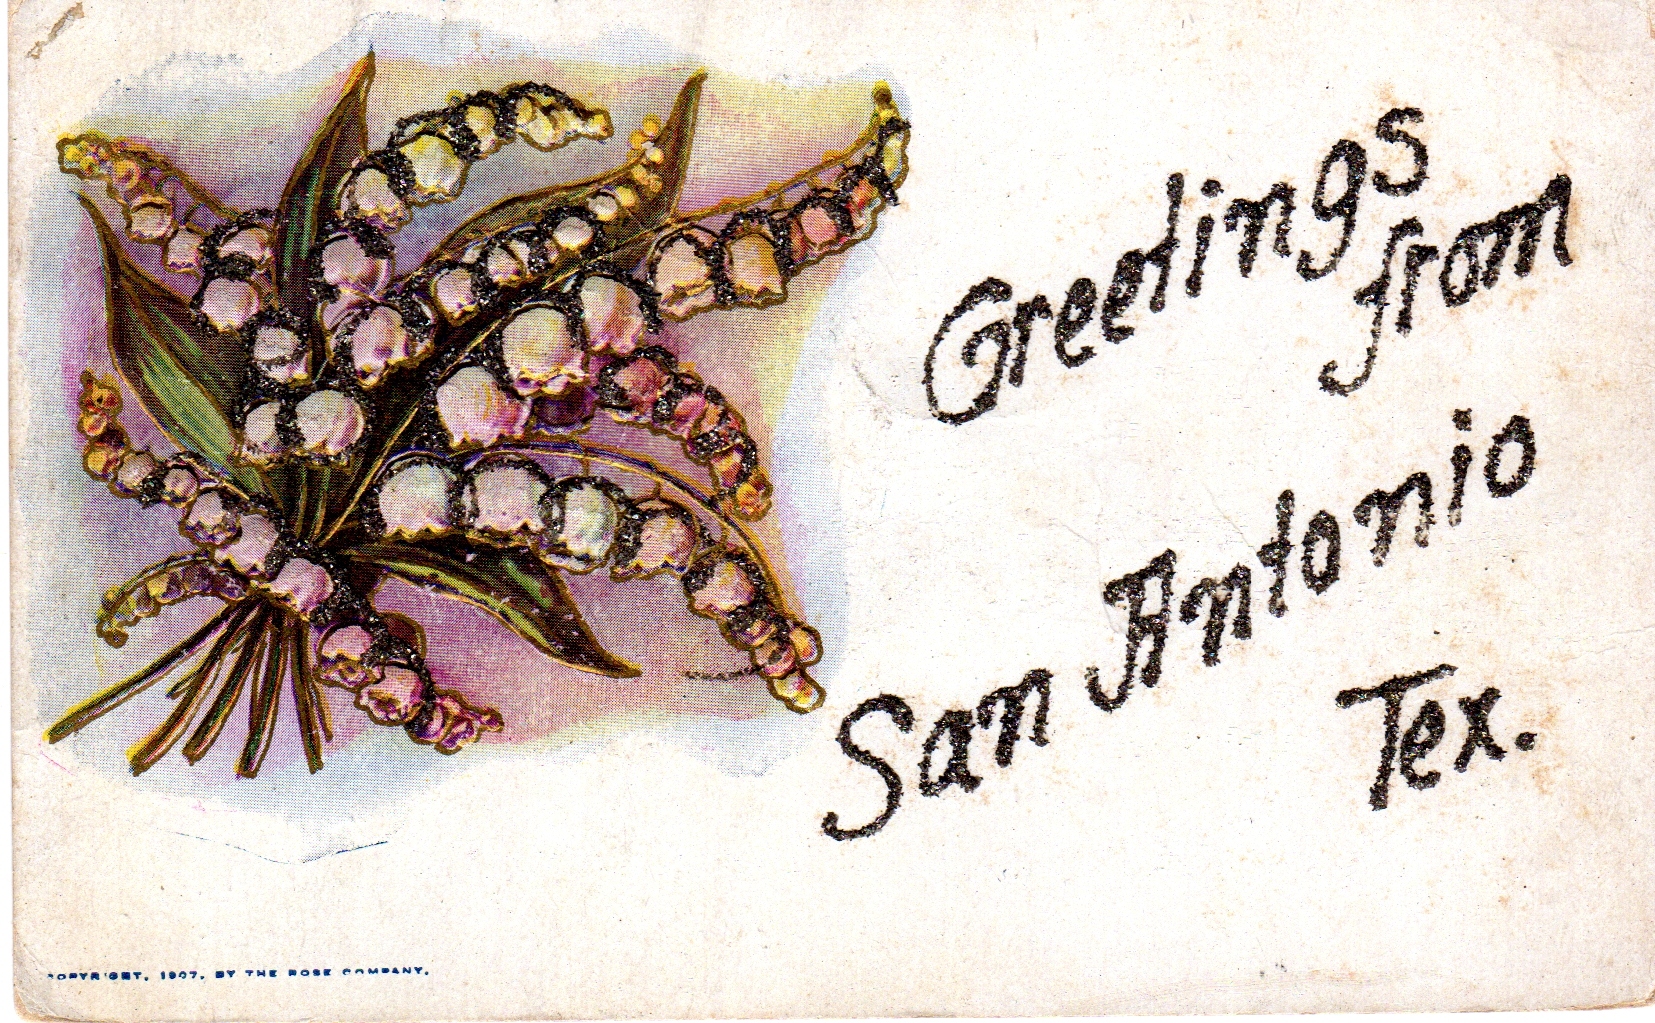 Greetings
from
San Antonio
Tex.
COPYRIGHT, 1907, BY THE ROSE COMPANY.